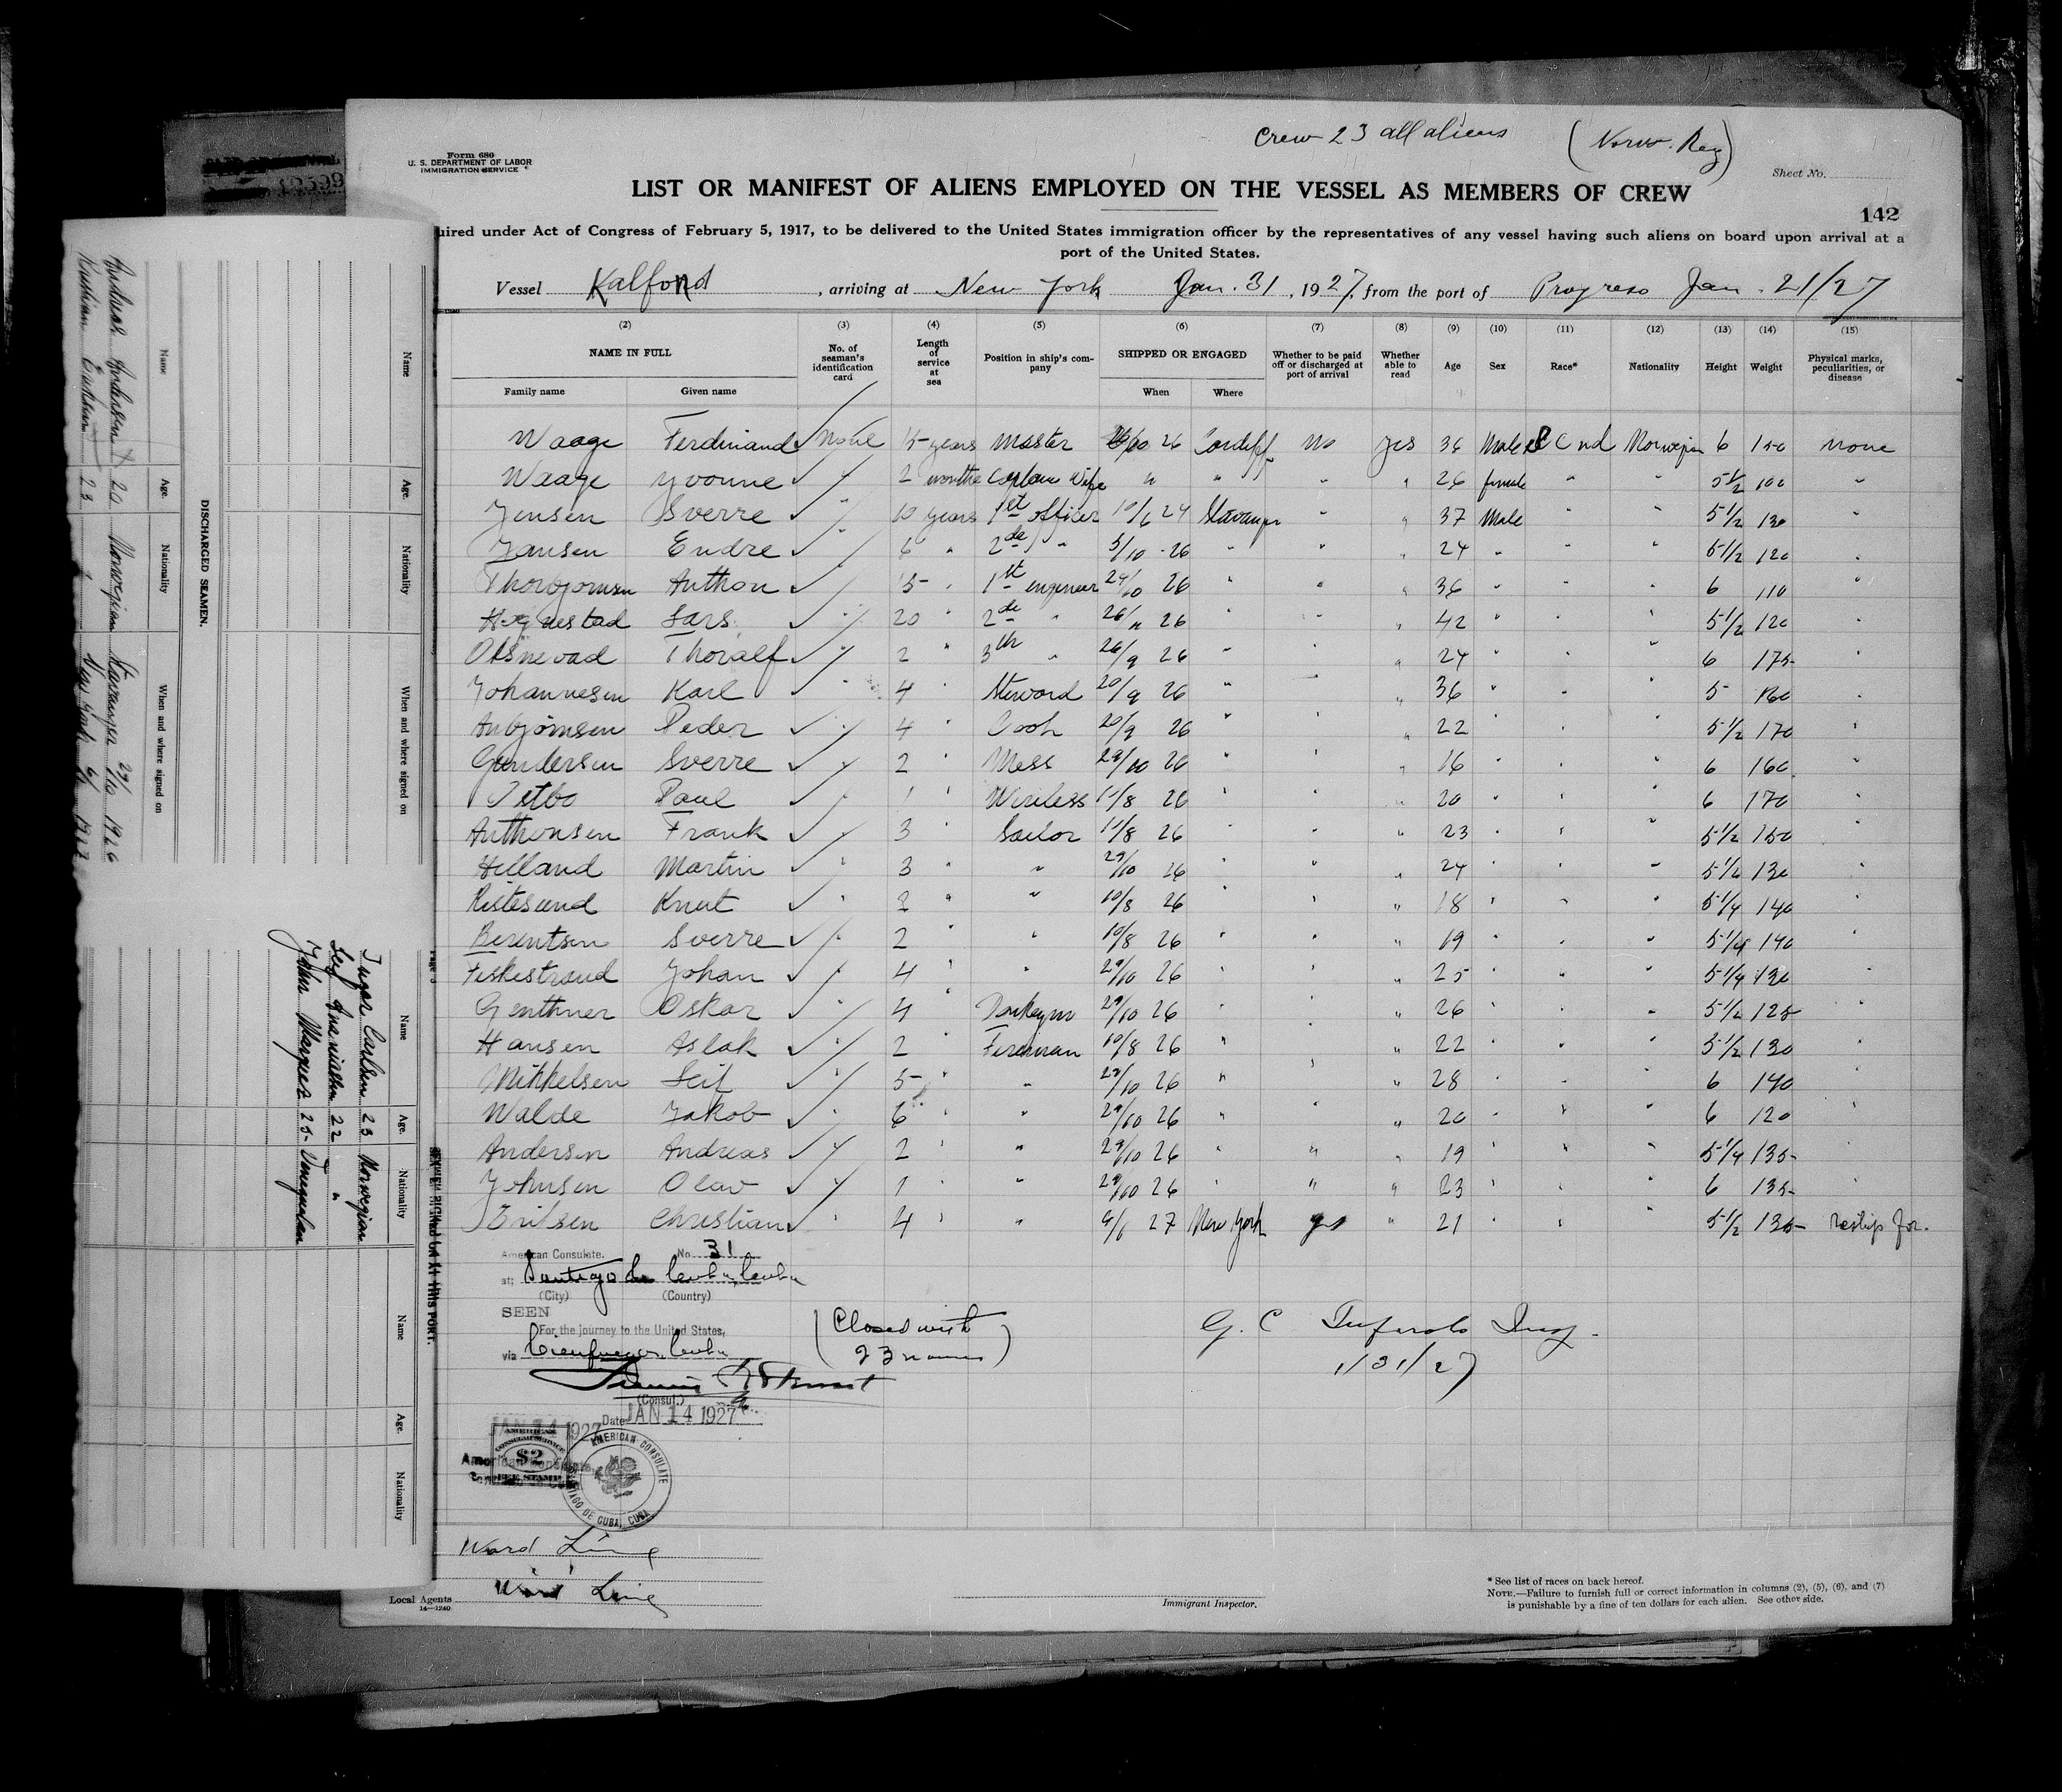 Crew 23 all aliens (Norw. Reg)
Form 680
U. S. DEPARTMENT OF LABOR
IMMIGRATION SERVICE
Sheet No.
LIST OR MANIFEST OF ALIENS EMPLOYED ON THE VESSEL AS MEMBERS OF CREW
142
uired under Act of Congress of February 5, 1917, to be delivered to the United States immigration officer by the representatives of any vessel having such aliens on board upon arrival at a
port of the United States.
Vessel Kalfond, arriving at New York Jan. 31, 1927, from the port of Progreso Jan. 21/27
(2) (3) (4) (5) (6) (7) (8) (9) (10) (11) (12) (13) (14) (15)
NAME IN FULL No. of seaman's identification card Length of service at sea Position in ship's company SHIPPED OR ENGAGED Whether to be paid off or discharged at port of arrival Whether able to read Age Sex Race* Nationality Height Weight Physical marks, peculiarities, or disease
Family name Given name When Where
Waage Ferdinand None 15 years Master 26 Cardiff No yes 36 Male Scnd Norwegian 6 150 none
Waage Yvonne 2 months Captain Wife " " " " 26 female " " 5 1/2 100 "
Jensen Sverre 10 years 1st officer 10/6 24 Stavanger " " 37 Male " " 5 1/2 130
Jansen Endre 6 " 2de " 5/10 26 " " " 24 " " " 5 1/2 120
Thorbjornsen Anthon 15 " 1st engineer 29/10 26 " " " 36 " " " 6 110 "
Lars 20 2de " 26/11 26 " " " 42 " " " 5 1/2 120 "
Thoralf 2 " 3th " 26/9 26 " " " 24 " " " 6 175 "
Johannesen Karl 4 " Steward 20/9 26 " " " 36 " " " 5 160
Anbjørnsen Peder 4 " Cook 20/9 26 " " " 22 " " " 5 1/2 170 "
Gundersen Sverre 2 " Mess 29/10 26 " " " 16 " " " 6 160 "
Paul 1 " Wireless 11/8 26 " " " 20 " " " 6 170 "
Anthonsen Frank 3 " Sailor 11/8 26 " " " 23 " " " 5 1/2 150 "
Helland Martin 3 " " 29/10 26 " " " 24 " " " 5 1/2 130 "
Ristesund Knut 2 " " 10/8 26 " " " 18 " " " 5 1/4 140 "
Berentsen Sverre 2 " " 10/8 26 " " " 19 " " " 5 1/4 140 "
Fiskestrand Johan 4 " " 29/10 26 " " " 25 " " " 5 1/4 130 "
Genthner Oskar 4 " Donkeym 29/10 26 " " " 26 " " " 5 1/2 125 "
Hansen Aslak 2 " Fireman 10/8 26 " " " 22 " " " 5 1/2 130 "
Mikkelsen Leif 5 " " 29/10 26 " " " 28 " " " 6 140 "
Walde Jakob 6 " " 29/10 26 " " " 20 " " " 6 120 "
Andersen Andreas 2 " " 29/10 26 " " " 19 " " " 5 1/4 135 "
Johnsen Olav 1 " " 29/10 26 " " " 23 " " " 6 135 "
Eriksen Christian 4 " " 6/1 27 New York yes " 21 " " " 5 1/2 135 reship for.
American Consulate. No. 31
at: Santiago de Cuba, Cuba
(City) (Country)
SEEN
For the journey to the United States,
via Cienfuegos, Cuba
(Consul.)
Date JAN 14 1927
JAN 14 1927
AMERICAN
CONSULAR SERVICE
$2
FEE STAMP
AMERICAN CONSULATE
SANTIAGO DE CUBA, CUBA
(Closed with
23 names)
G. C. Insp.
1/31/27
Ward Line
Ward Line
Local Agents
14—1240
Immigrant Inspector.
* See list of races on back hereof.
NOTE.—Failure to furnish full or correct information in columns (2), (5), (6), and (7)
is punishable by a fine of ten dollars for each alien. See other side.
DISCHARGED SEAMEN.
Name Age. Nationality When and where signed on
Name Age. Nationality When and where signed on
Andreas Andersen 20 Norwegian Stavanger 29/10 1926
Kristian Eriksen 23 " New York 6/1 1927
Name Age. Nationality
Name Age. Nationality
Ingar Carlsen 23 Norwegian
Leif 22 "
John Marquez 25 Venezuelan